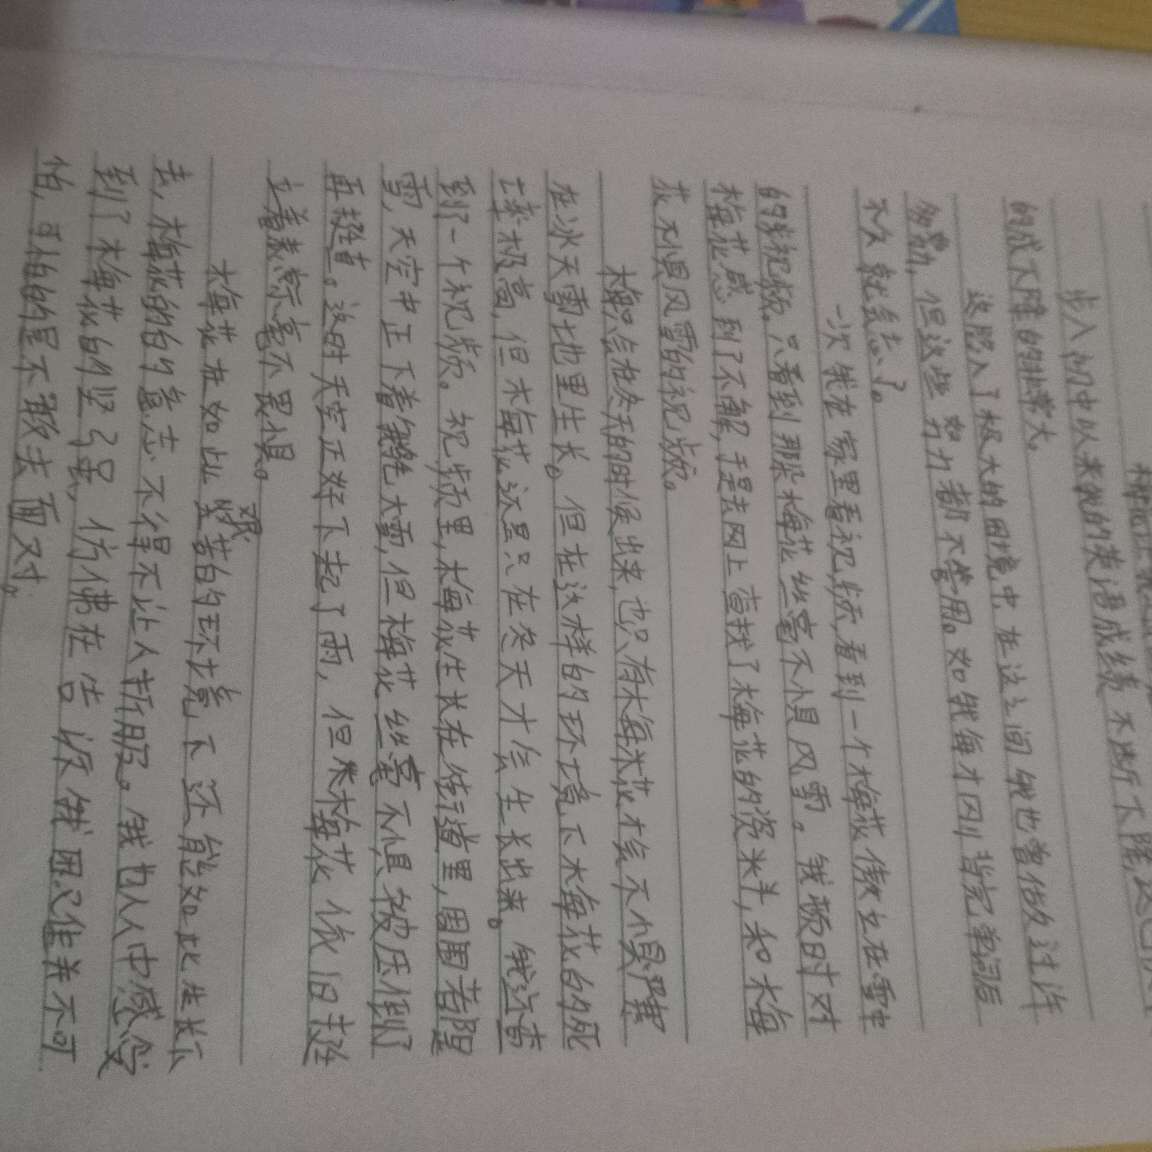 步入初中以来我的英语成绩不断下降,这
的成下降的非常大。
这陷入了极大的困境中,在这之间我也曾做过许
多努力,但这些努力都不管用。如我每才因背完单词后
不久就会忘了。
一次我在家里看视频,看到一个梅花傲立在雪中
的类视频。只看到那朵梅花丝毫不惧风雪。我顿时对
梅花感到了不解,于是去网上查找了梅花的资料,和梅
花不惧风雪的视频。
梅只会在冬天的时候出来,也只有梅花才会不惧严寒
在冰天雪地里生长。但在这样的环境下梅花的死
率极高,但梅花还是只在冬天才会生长出来。我还看
到了一个视频。视频里,梅花生长在街道里,周围着
雪,天空中正下着大雪,但梅花丝毫不惧被压倒了
再挺直。这时天空正好下起了雨,但梅花依旧挺
立着表示毫不畏惧。
梅花在如此艰苦的环境下还能如此生长下
去,梅花的的意志不得不让人折服。我也从中感受
到了梅花的坚强,仿佛在告诉我困难并不可
怕,可怕的是不敢去面对。